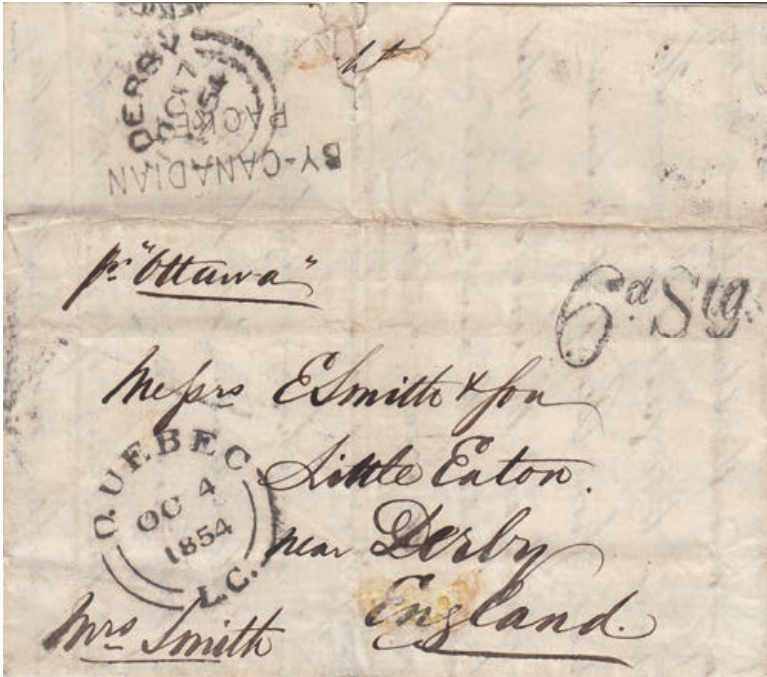 DERBY
OC 17
1854
BY-CANADIAN
PACKET
pr "Ottawa"
6d Stg.
Messrs E Smith & Son
Little Eaton.
near Derby
England.
QUEBEC
OC 4
1854
L.C.
Mrs Smith